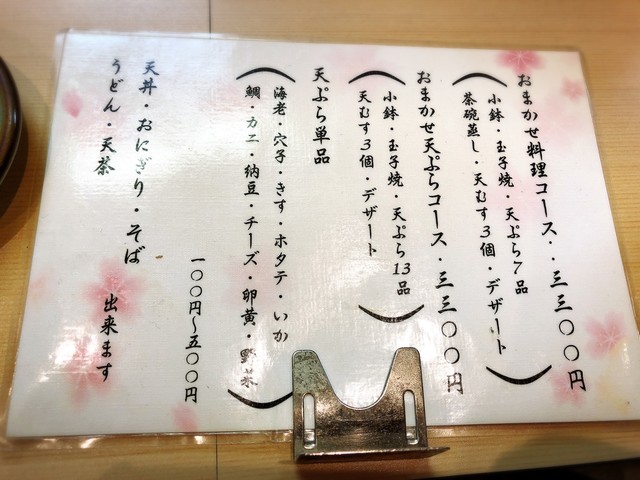 おまかせ料理コース・・三三〇〇円
(小鉢・玉子焼・天ぷら7品
茶碗蒸し・天むす3個・デザート)
おまかせ天ぷらコース・三三〇〇円
(小鉢・玉子焼・天ぷら13品
天むす3個・デザート)
天ぷら単品
(海老・穴子・きす・ホタテ・いか
鯛・カニ・納豆・チーズ・卵黄・野菜)
一〇〇円〜五〇〇円
天丼・おにぎり・そば
うどん・天茶
出来ます